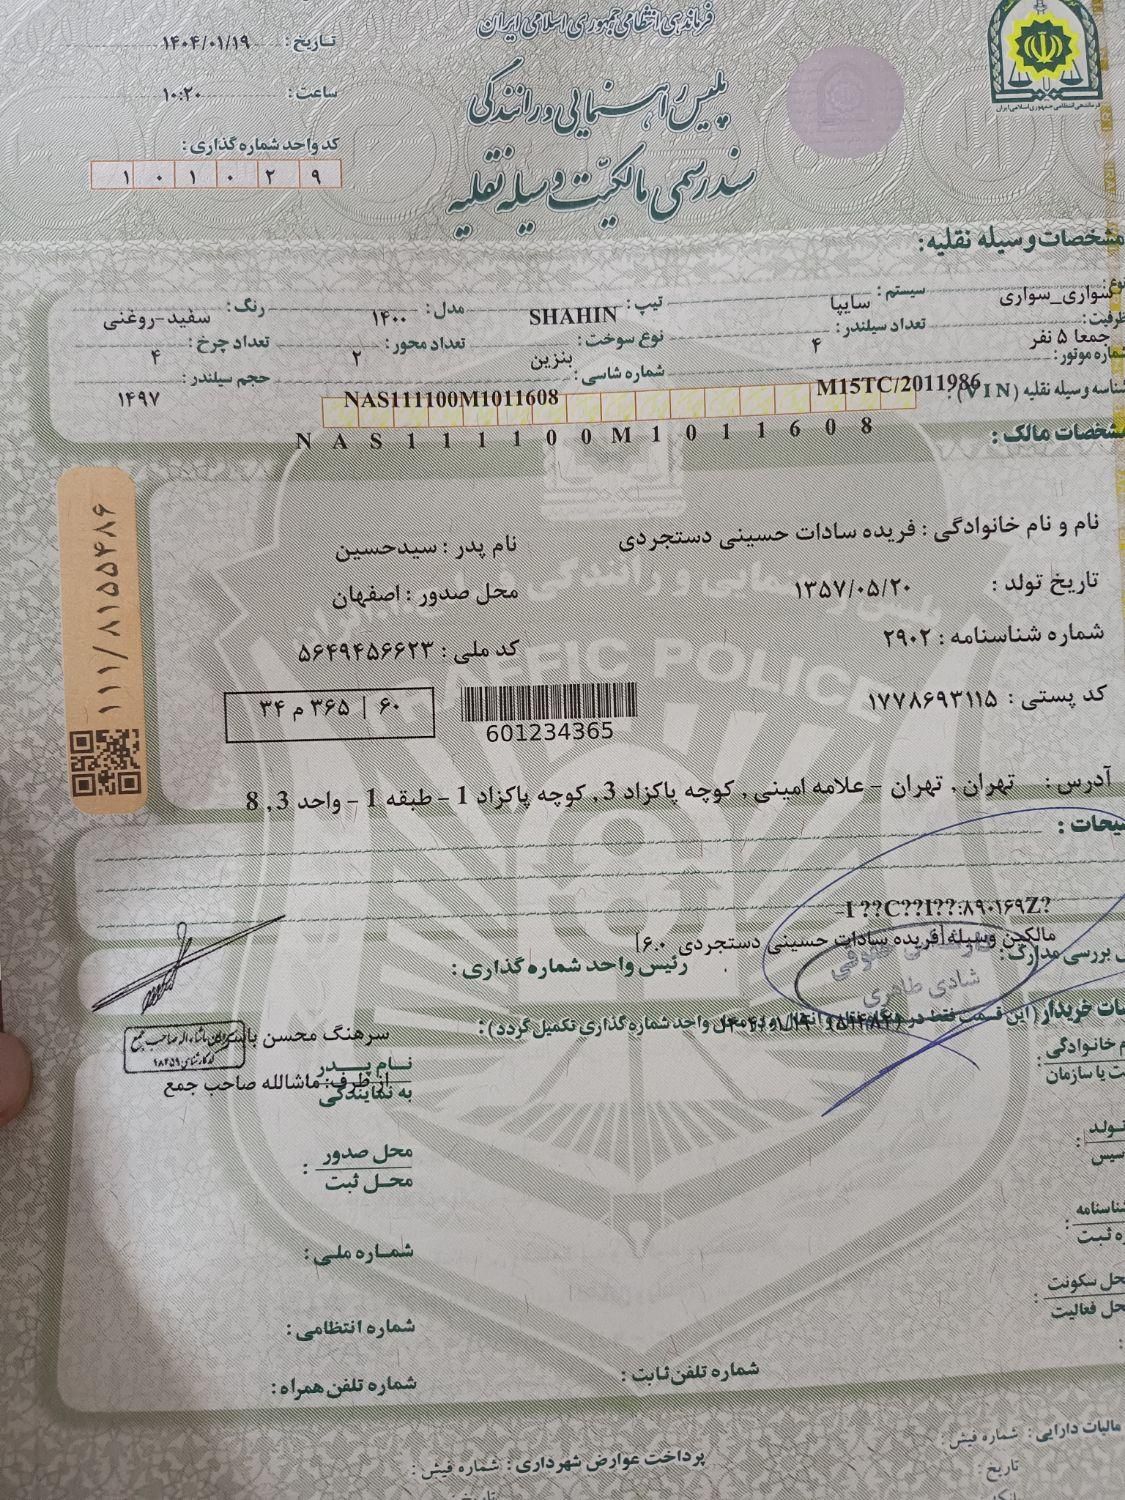 فرماندهی انتظامی جمهوری اسلامی ایران
پلیس راهنمایی و رانندگی
سند رسمی مالکیت وسیله نقلیه
فرماندهی انتظامی جمهوری اسلامی ایران
تاریخ: ۱۴۰۴/۰۱/۱۹
ساعت: ۱۰:۲۰
کد واحد شماره گذاری:
۱ ۰ ۱ ۰ ۲ ۹
مشخصات وسیله نقلیه:
نوع: سواری_سواری سیستم: سایپا تیپ: SHAHIN مدل: ۱۴۰۰ رنگ: سفید-روغنی
ظرفیت: جمعا ۵ نفر تعداد سیلندر: ۴ نوع سوخت: بنزین تعداد محور: ۲ تعداد چرخ: ۴
شماره موتور: M15TC/2011986 شماره شاسی: NAS111100M1011608 حجم سیلندر: ۱۴۹۷
شناسه وسیله نقلیه (VIN):
N A S 1 1 1 1 0 0 M 1 0 1 1 6 0 8
مشخصات مالک:
نام و نام خانوادگی : فریده سادات حسینی دستجردی نام پدر : سیدحسین
تاریخ تولد : ۱۳۵۷/۰۵/۲۰ محل صدور : اصفهان
شماره شناسنامه : ۲۹۰۲ کد ملی : ۵۶۴۹۴۵۶۶۲۳
کد پستی : ۱۷۷۸۶۹۳۱۱۵
601234365
۶۰ | ۳۶۵ م ۳۴
۱۱۱/۸۱۵۵۴۸۶
TRAFFIC POLICE
آدرس : تهران , تهران - علامه امینی , کوچه پاکزاد 3 , کوچه پاکزاد 1 - طبقه 1 - واحد 3 , 8
یحات :
I ??C??I??:۸۹۰۱۶۹Z?-
مالکین وسیله|فریده سادات حسینی دستجردی ۶.۰|
بررسی مدارک : رئیس واحد شماره گذاری :
شادی طاهری
سرهنگ محسن
از طرف: ماشالله صاحب جمع
ات خریدار (این قسمت فقط در
محل واحد شماره گذاری تکمیل گردد) :
م خانوادگی
ت یا سازمان :
نـام پـــدر
به نمایندگی
تولد
سیس :
محل صدور
محل ثبت :
شناسنامه
ه ثبت :
شماره ملی :
حل سکونت
حل فعالیت :
شماره انتظامی :
شماره تلفن ثابت :
شماره تلفن همراه :
مالیات دارایی : شماره فیش :
پرداخت عوارض شهرداری : شماره فیش :
تاریخ :
تاریخ :